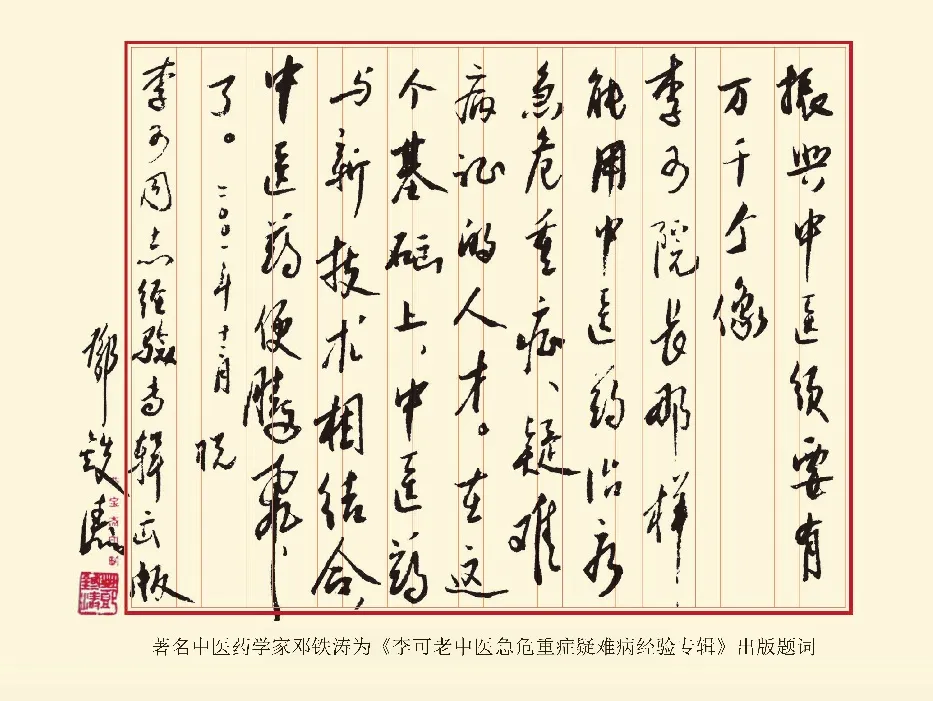 振興中医须要有
万千个像
李可院长那样
能用中医药治疗
急危重症、疑难
病证的人才。在这
个基础上，中医药
与新技术相结合，
中医药便腾飞
了。二〇〇一年十二月 祝
李可同志经验专辑出版
邓铁涛
著名中医药学家邓铁涛为《李可老中医急危重症疑难病经验专辑》出版题词